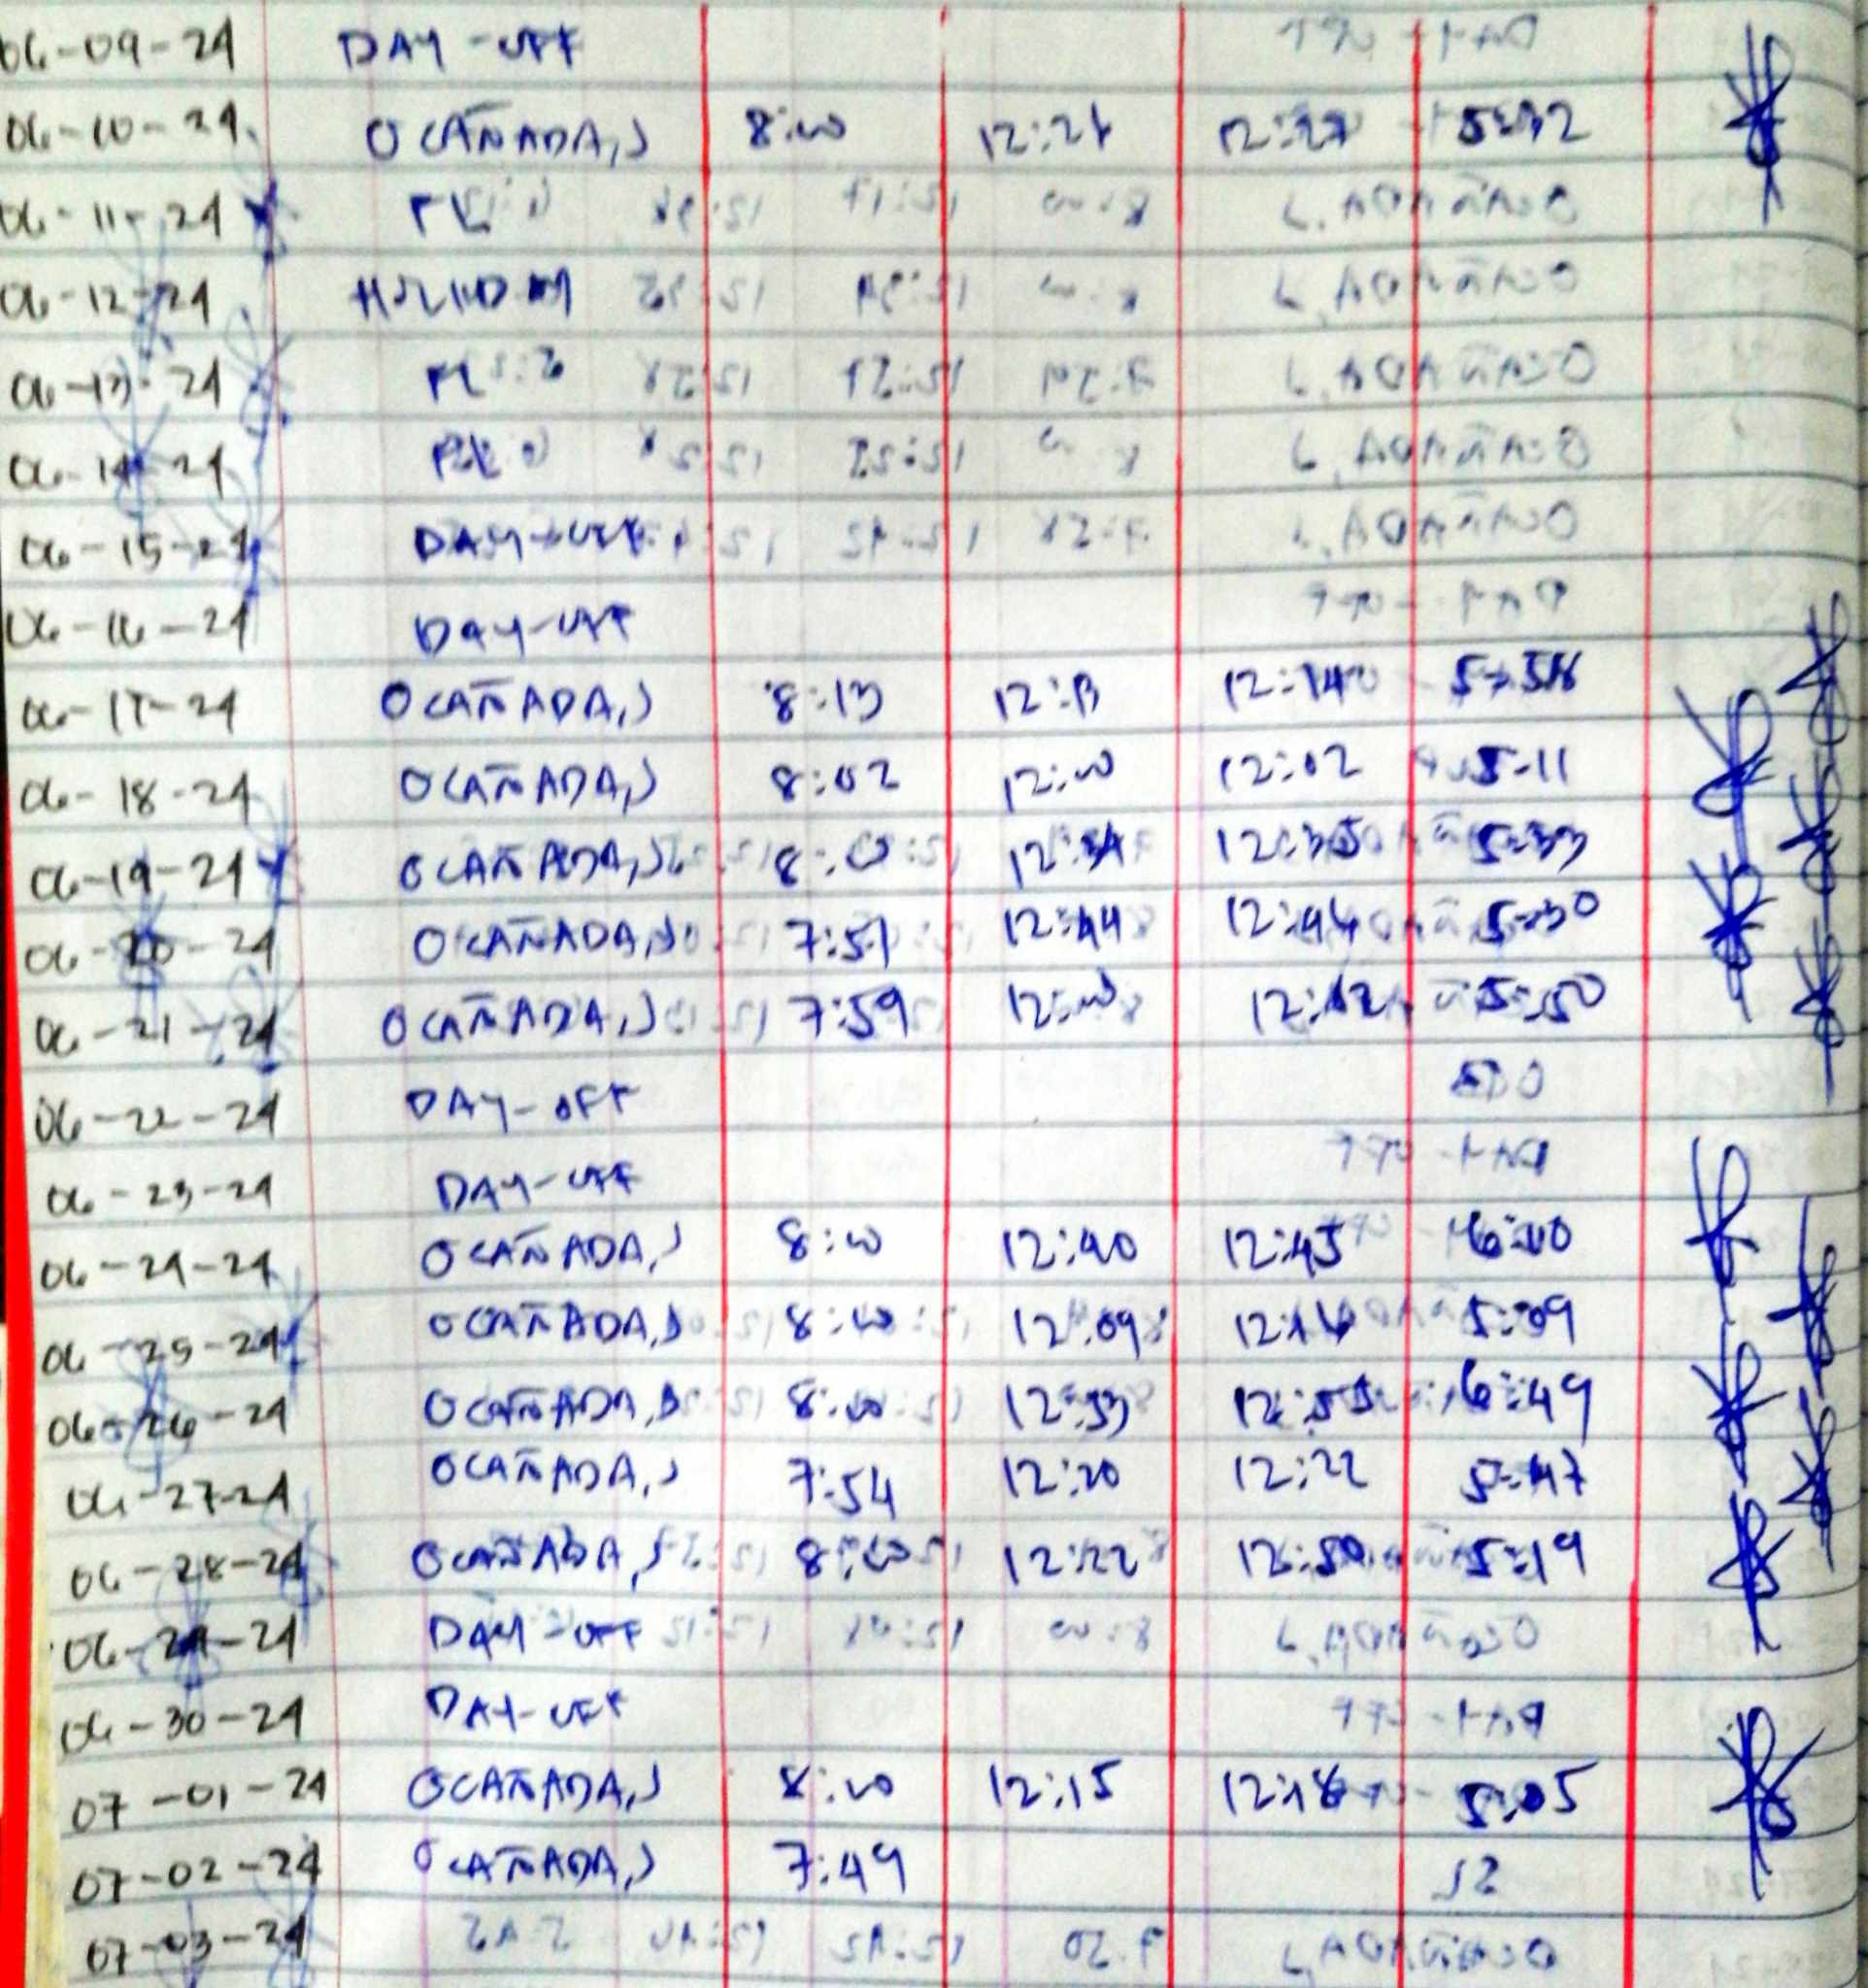 06-09-24 DAY-OFF
06-10-24 OCAÑADA,J 8:00 12:24 12:27 5:32
06-11-24 FL
06-12-24 HOLIDAY
06-13-24 FL
06-14-24 FL
06-15-24 DAY-OFF
06-16-24 DAY-OFF
06-17-24 OCAÑADA,J 8:13 12:13 12:14 5:58
06-18-24 OCAÑADA,J 8:02 12:00 12:02 5:11
06-19-24 OCAÑADA,J 8:00 12:34 12:35 5:33
06-20-24 OCAÑADA,J 7:51 12:44 12:46 5:30
06-21-24 OCAÑADA,J 7:59 12:00 12:02 5:50
06-22-24 DAY-OFF
06-23-24 DAY-OFF
06-24-24 OCAÑADA,J 8:00 12:40 12:45 6:00
06-25-24 OCAÑADA,J 8:00 12:09 12:16 5:09
06-26-24 OCAÑADA,J 8:00 12:53 12:55 6:49
06-27-24 OCAÑADA,J 7:54 12:20 12:22 5:47
06-28-24 OCAÑADA,J 8:00 12:22 12:50 5:19
06-29-24 DAY-OFF
06-30-24 DAY-OFF
07-01-24 OCAÑADA,J 8:00 12:15 12:18 5:05
07-02-24 OCAÑADA,J 7:49
07-03-24